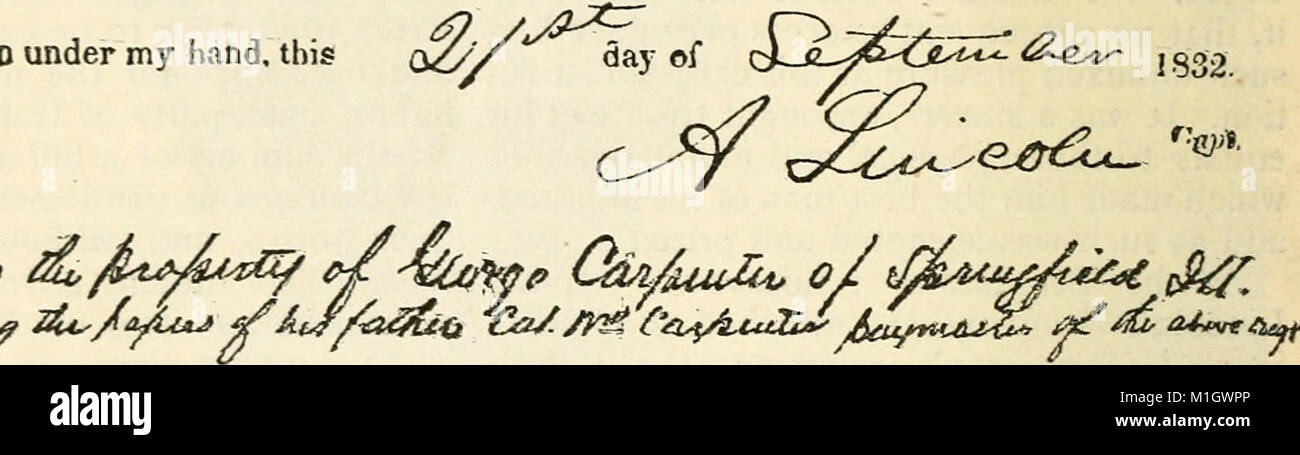 under my hand, this 21st day of September 1832.
A Lincoln Capt.
the property of George Carpenter of Springfield Ill.
the papers of his father Col. Wm Carpenter paymaster of the above regt
alamy
Image ID: M1GWPP
www.alamy.com